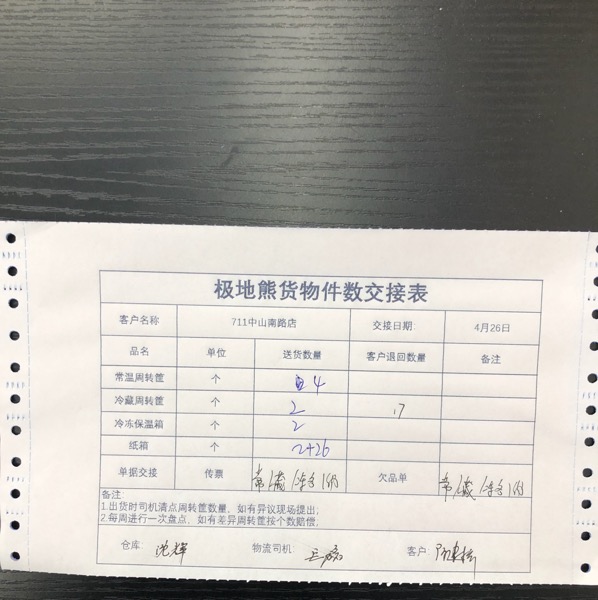 极地熊货物件数交接表
客户名称 711中山南路店 交接日期: 4月26日
品名 单位 送货数量 客户退回数量 备注
常温周转筐 个 4
冷藏周转筐 个 2 17
冷冻保温箱 个 2
纸箱 个 2+26
单据交接 传票 常 欠品单 常
备注:
1.出货时司机清点周转筐数量，如有异议现场提出;
2.每周进行一次盘点，如有差异周转筐按个数赔偿.
仓库: 沈辉 物流司机: 客户: